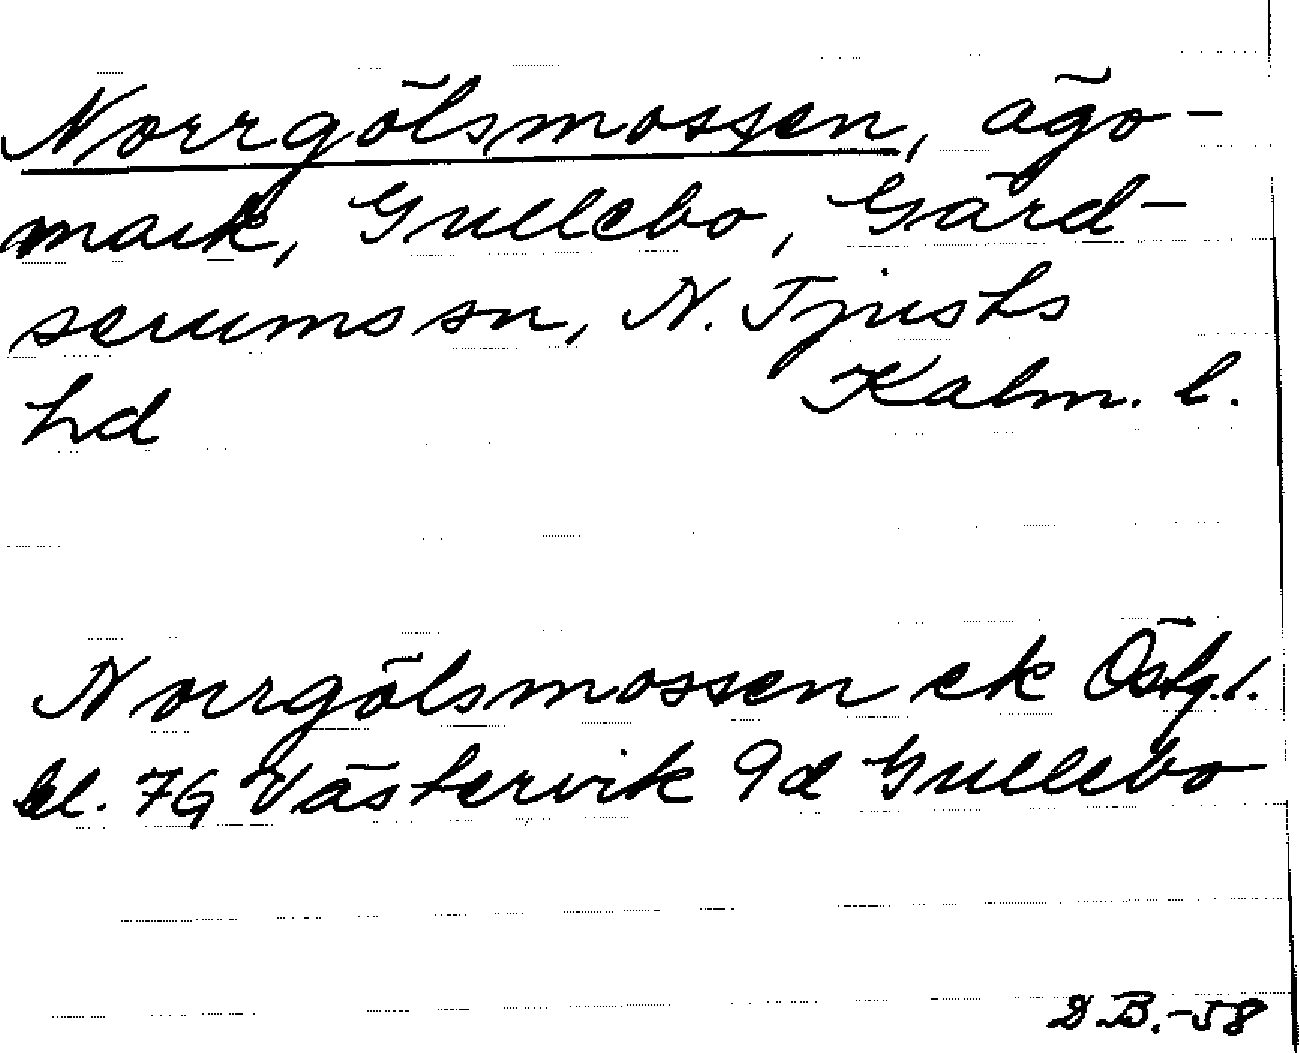 Norrgölsmossen, ägo-
mark, Gullebo, Gärd-
serums sn, N. Tjusts
hd Kalm. l.
Norrgölsmossen ek Östg. l.
bl. 7G Västervik 9d Gullebo
D.B.-58